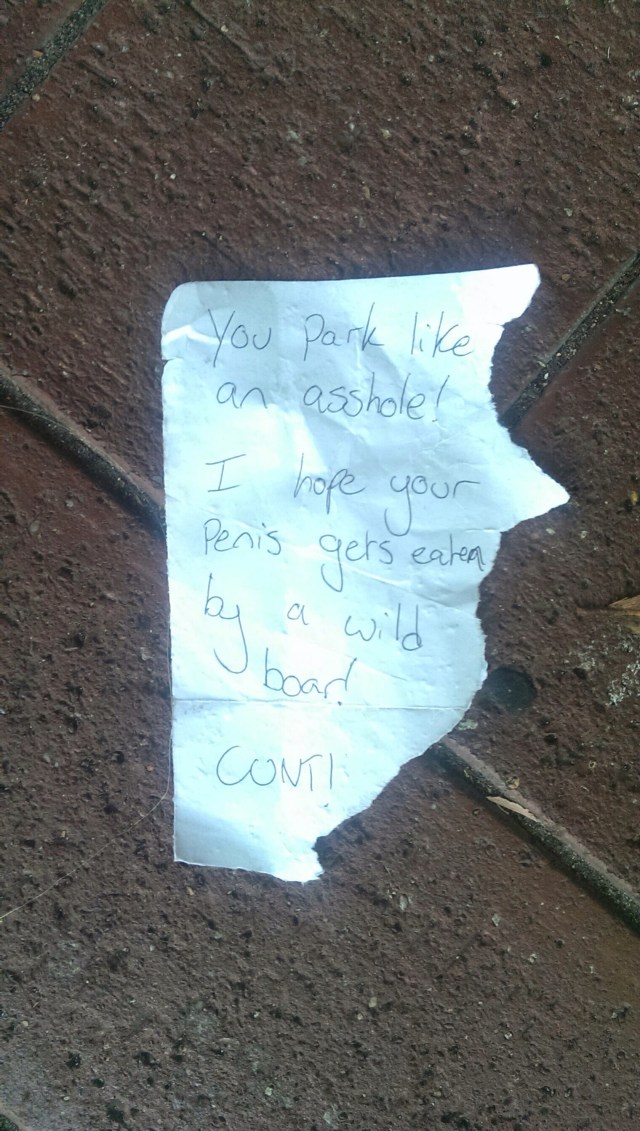 You Park like
an asshole!
I hope your
Penis gets eaten
by a wild
boar!
CUNT!